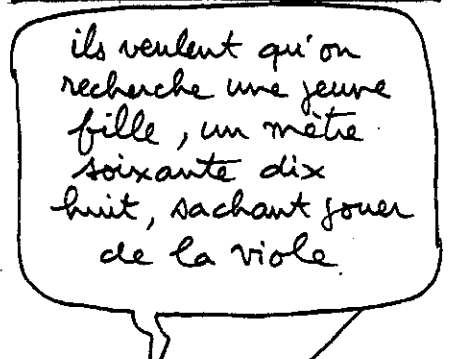 ils veulent qu'on
recherche une jeune
fille, un mètre
soixante dix
huit, sachant jouer
de la viole